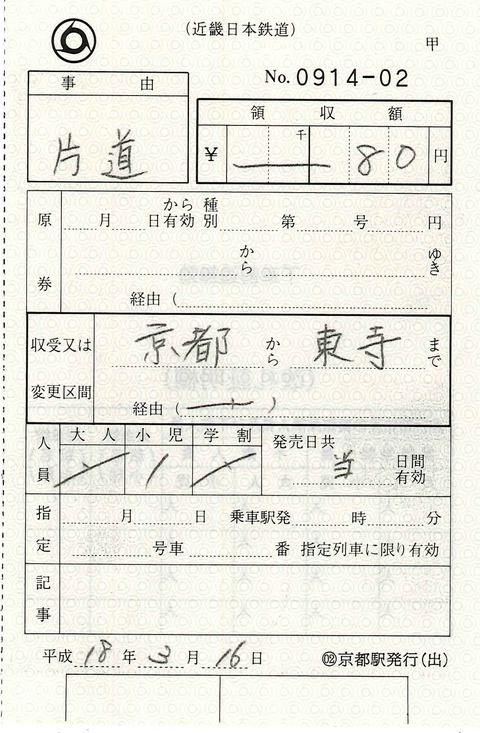 (近畿日本鉄道)
甲
No. 0914-02
事由
片道
領収額
¥ 千 80 円
原券
月 日から有効 種別 第 号 円
から ゆき
経由(
収受又は変更区間
京都 から 東寺 まで
経由( )
人員
大人 小児 学割
1
発売日共 当 日間有効
指定
月 日 乗車駅発 時 分
号車 番 指定列車に限り有効
記事
平成 18 年 3 月 16 日
02京都駅発行(出)